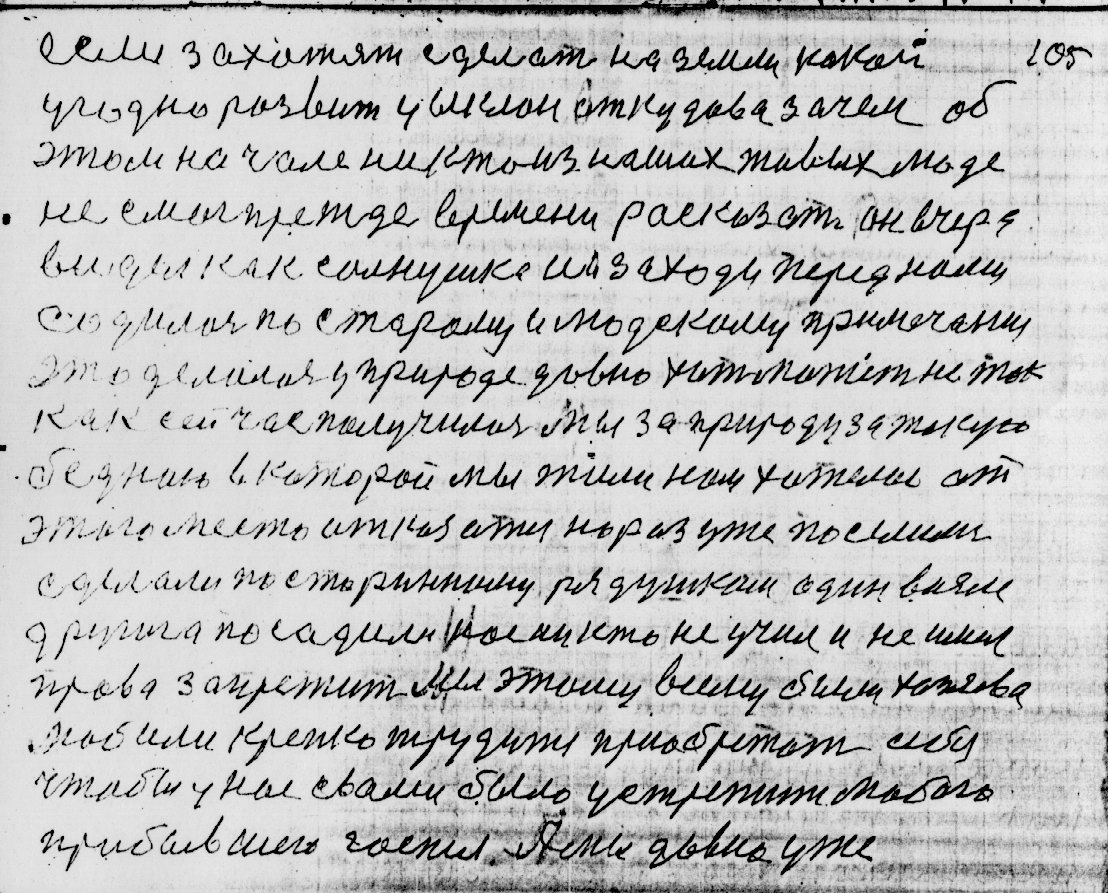 если захотят сделат на земли какой 105
угодно розвит цыклон откудова зачем об
этом начале никто из наших живых люде
не смог прежде времени росказат он вчеря
видел как солнушка и заходи перед нами
садилося по старому и людскому примечанию
это делолося у природе давно хотя может не так
как сейчас получилося Мы за природу за такую
бедною в которой мы жили нам хотелос от
этого место отказатся нораз уже поселили
сделали по старинному рядушком один возле
другига посадили нас никто не учил и не имел
права запрежит Мы этому всему были хозяева
любили крепко трудитя приобретат себя
чтобы у нас свами было устретити любого
прибывшего гостя Я мы давно уже